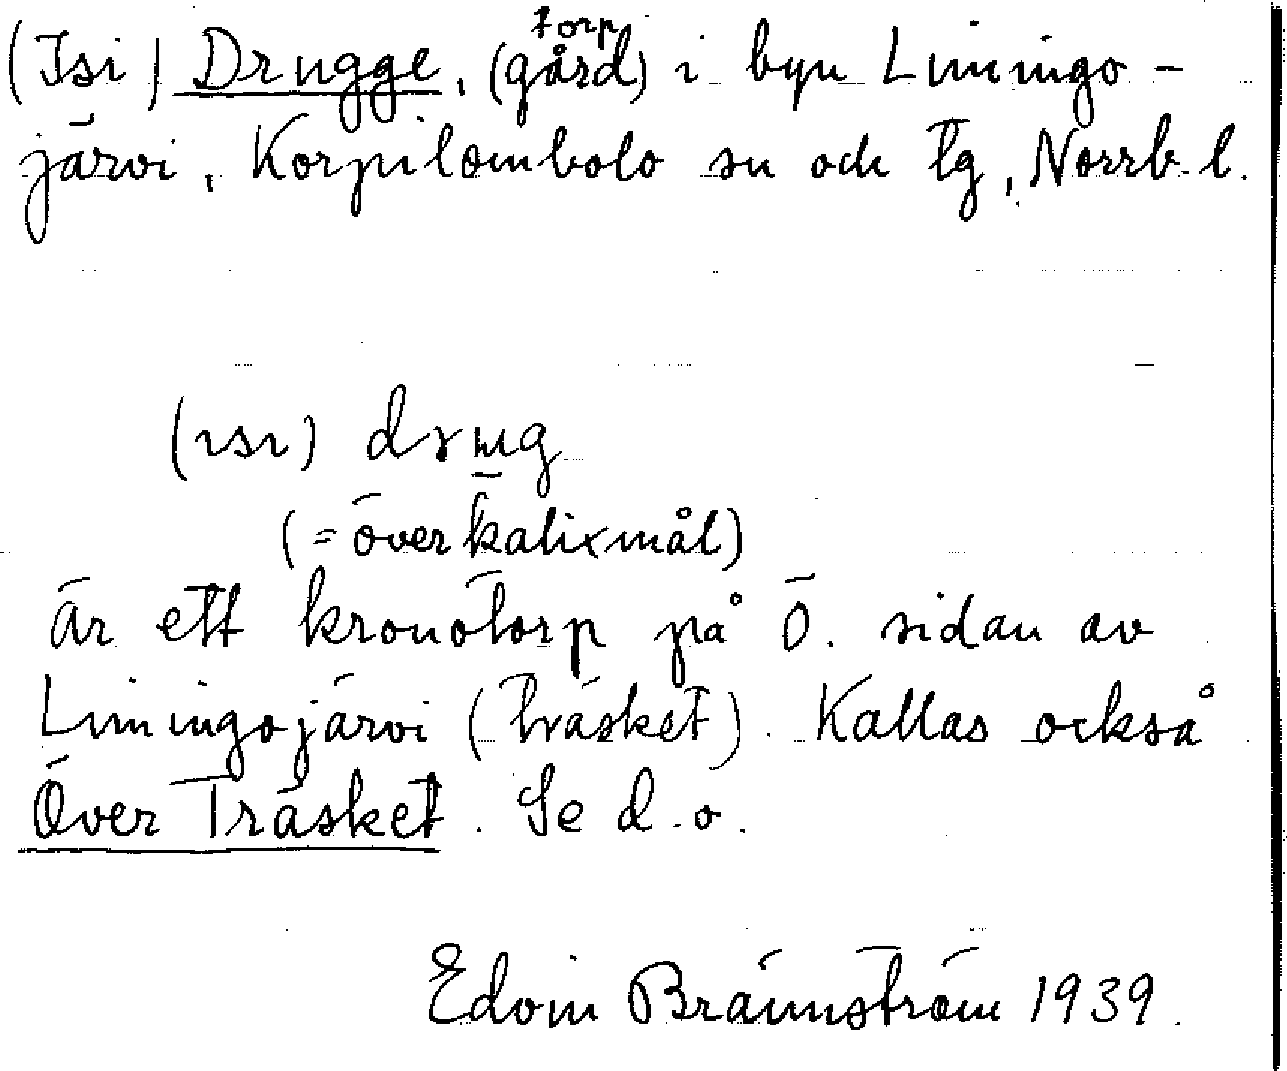 (Isi) Drugge, (gård) torp i byn Liningo-
järvi, Korpilombolo sn och tg, Norrb. l.
(ɪsɪ) drɯg
(= överkalixmål)
är ett kronotorp på Ö. sidan av
Liningojärvi (träsket). Kallas också
Över Träsket. Se d. o.
Edvin Brännström 1939.